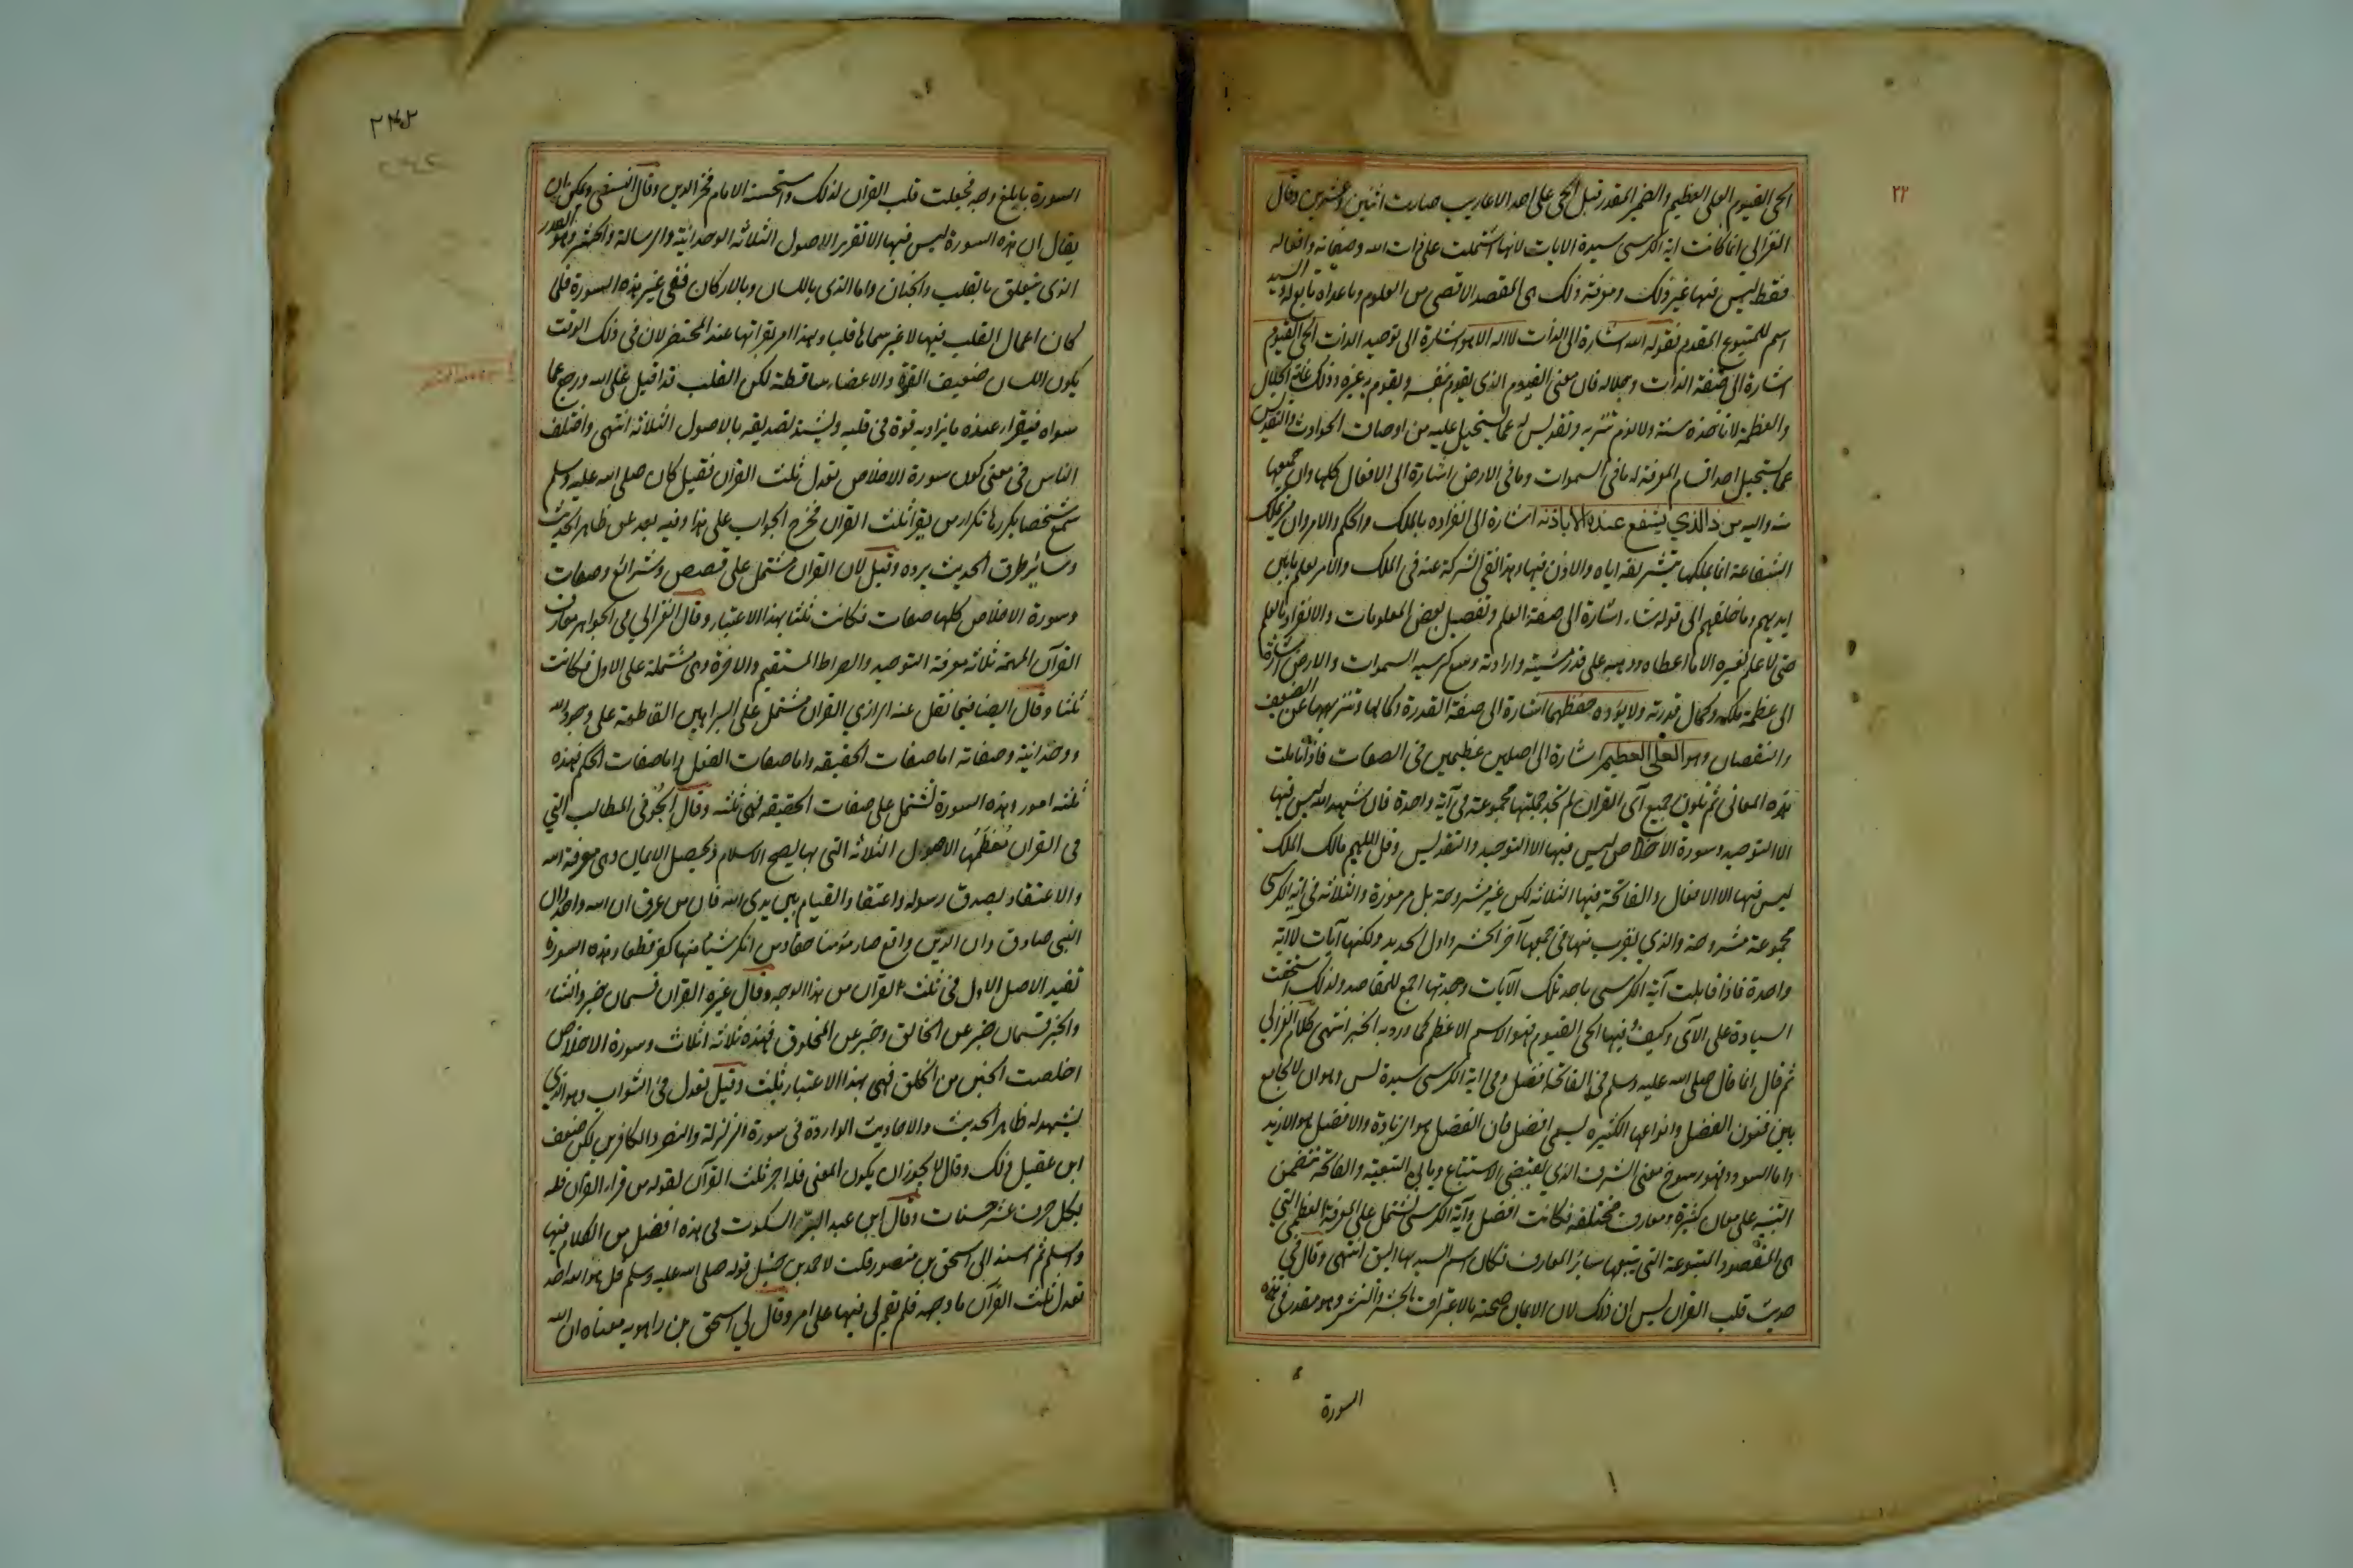 ٢٢
الحي القيوم العلي العظيم والضمير المقدر قبل الحي على احد الاعاريب صارت اثنين وعشرين وقال
الغزالي انما كانت اية الكرسي سيدة الايات لانها اشتملت على ذات الله وصفاته وافعاله
فقط ليس فيها غير ذلك ومعرفة ذلك هي المقصد الاقصى من العلوم وما عداه تابع له والسيد
اسم للمتبوع المقدم فقوله الله اشارة الى الذات لا اله الا هو اشارة الى توحيد الذات الحي القيوم
اشارة الى صفة الذات وجلاله فان معنى القيوم الذي يقوم بنفسه ويقوم به غيره وذلك غاية الجلال
والعظمة لا تاخذه سنة ولا نوم تنزيه وتقديس له عما يستحيل عليه من اوصاف الحوادث والتقديس
عما يستحيل احد اقسام المعرفة له ما في السموات وما في الارض اشارة الى الافعال كلها وان جميعها
منه واليه من ذا الذي يشفع عنده الا باذنه اشارة الى انفراده بالملك والحكم والامر وان من يملك
الشفاعة انما يملكها بتشريفه اياه والاذن فيها وهذا نفي الشركة عنه في الملك والامر يعلم ما بين
ايديهم وما خلفهم الى قوله شاء اشارة الى صفة العلم وتفصيل بعض المعلومات والانفراد بالعلم
حتى لا علم لغيره الا ما اعطاه ووهبه على قدر مشيته وارادته وسع كرسيه السموات والارض اشارة
الى عظمة ملكه وكمال قدرته ولا يؤده حفظهما اشارة الى صفة القدرة وكمالها وتنزيهها عن الضعف
والنقصان وهو العلي العظيم اشارة الى اصلين عظيمين في الصفات فاذا تاملت
هذه المعاني ثم تلوت جميع آي القران لم تجد جملتها مجموعة في آية واحدة فان شهد الله ليس فيها
الا التوحيد وسورة الاخلاص ليس فيها الا التوحيد والتقديس وقل اللهم مالك الملك
ليس فيها الا الافعال والفاتحة فيها الثلاثة لكن غير مشروحة بل مرموزة والثلاثة في اية الكرسي
مجموعة مشروحة والذي يقرب منها في جمعها آخر الحشر واول الحديد ولكنها آيات لا آية
واحدة فاذا قابلت آية الكرسي باحد تلك الآيات وجدتها اجمع للمقاصد ولذلك استحقت
السيادة على الآي وكيف وفيها الحي القيوم فهو الاسم الاعظم كما ورد به الخبر انتهى كلام الغزالي
ثم قال انما قال صلى الله عليه وسلم في الفاتحة افضل وفي اية الكرسي سيدة لسر وهو ان الجامع
بين فنون الفضل وانواعها الكثيره يسمى افضل فان الفضل هو الزيادة والافضل هو الازيد
واما السودد فهو رسوخ معنى الشرف الذي يقتضي الاستتباع ويابى التبعية والفاتحة تتضمن
التنبيه على معان كثيرة ومعارف مختلفه فكانت افضل وآية الكرسي تشتمل على المعرفة العظمى التي
هي المقصود المتبوعة التي يتبعها سائر المعارف فكان اسم السيد بها اليق انتهى وقال في
حديث قلب القران يس ان ذلك لان الايمان صحته بالاعتراف بالحشر والنشر وهو مقدر في هذه
السورة
٢٤٢
السورة بابلغ وجه فجعلت قلب القران لذلك واستحسنه الامام فخر الدين وقال النسفي ويمكن ان
يقال ان هذه السورة ليس فيها الا تقرير الاصول الثلاثة الوحدانية والرسالة والحشر وهو القدر
الذي يتعلق بالقلب والجنان واما الذي باللسان وبالاركان ففي غير هذه السورة فلما
كان اعمال القلب فيها لا غير سماها قلبا ولهذا امر بقراتها عند المحتضر لان في ذلك الوقت
يكون اللسان ضعيف القوة والاعضاء ساقطة لكن القلب قد اقبل على الله ورجع عما
سواه فيقرا عنده ما يزداد به قوة في قلبه ويشتد تصديقه بالاصول الثلاثة انتهى واختلف
الناس في معنى كون سورة الاخلاص تعدل ثلث القرآن فقيل كان صلى الله عليه وسلم
سمع شخصا يكررها تكرار من يقرا ثلث القران فخرج الجواب على هذا وفيه بعد عن ظاهر الحديث
وسائر طرق الحديث يرده وقيل لان القران مشتمل على قصص وشرائع وصفات
وسورة الاخلاص كلها صفات فكانت ثلثا بهذا الاعتبار وقال الغزالي في الجواهر معارف
القرآن المهمة ثلاثة معرفة التوحيد والصراط المستقيم والاخرة وهي مشتملة على الاول فكانت
ثلثا وقال ايضا فيما نقل عنه الرازي القران مشتمل على البراهين القاطعة على وجود الله
ووحدانيته وصفاته اما صفات الحقيقه واما صفات الفعل واما صفات الحكم فهذه
ثلثة امور وهذه السورة تشتمل على صفات الحقيقه فهي ثلثه وقال الجوني المطالب التي
في القران معظمها الاصول الثلاثة التي بها يصح الاسلام ويحصل الايمان وهي معرفة الله
والاعتقاد بصدق رسوله واعتقاد القيام بين يدي الله فان من عرف ان الله واحد وان
النبي صادق وان الدين واقع صار مؤمنا حقا ومن انكر شيئا منها كفر قطعا وهذه السورة
تفيد الاصل الاول فهي ثلث القرآن من هذا الوجه وقال غيره القران قسمان خبر وانشاء
والخبر قسمان خبر عن الخالق وخبر عن المخلوق فهذه ثلاثة اثلاث وسورة الاخلاص
اخلصت الخبر عن الخلق فهي بهذا الاعتبار ثلث وقيل تعدل في الثواب وهو الذي
يشهد له ظاهر الحديث والاحاديث الواردة في سورة الزلزلة والنصر والكافرين لكن ضعف
ابن عقيل ذلك وقال لا يجوز ان يكون المعنى فله اجر ثلث القرآن لقوله من قرا القرآن فله
بكل حرف عشر حسنات وقال ابن عبد البر السكوت في هذه افضل من الكلام فيها
واسلم ثم اسند الى اسحق بن منصور قلت لاحمد بن حنبل قوله صلى الله عليه وسلم قل هو الله احد
تعدل ثلث القرآن ما وجهه فلم يقم لي فيها على امر وقال لي اسحق بن راهويه معناه ان الله